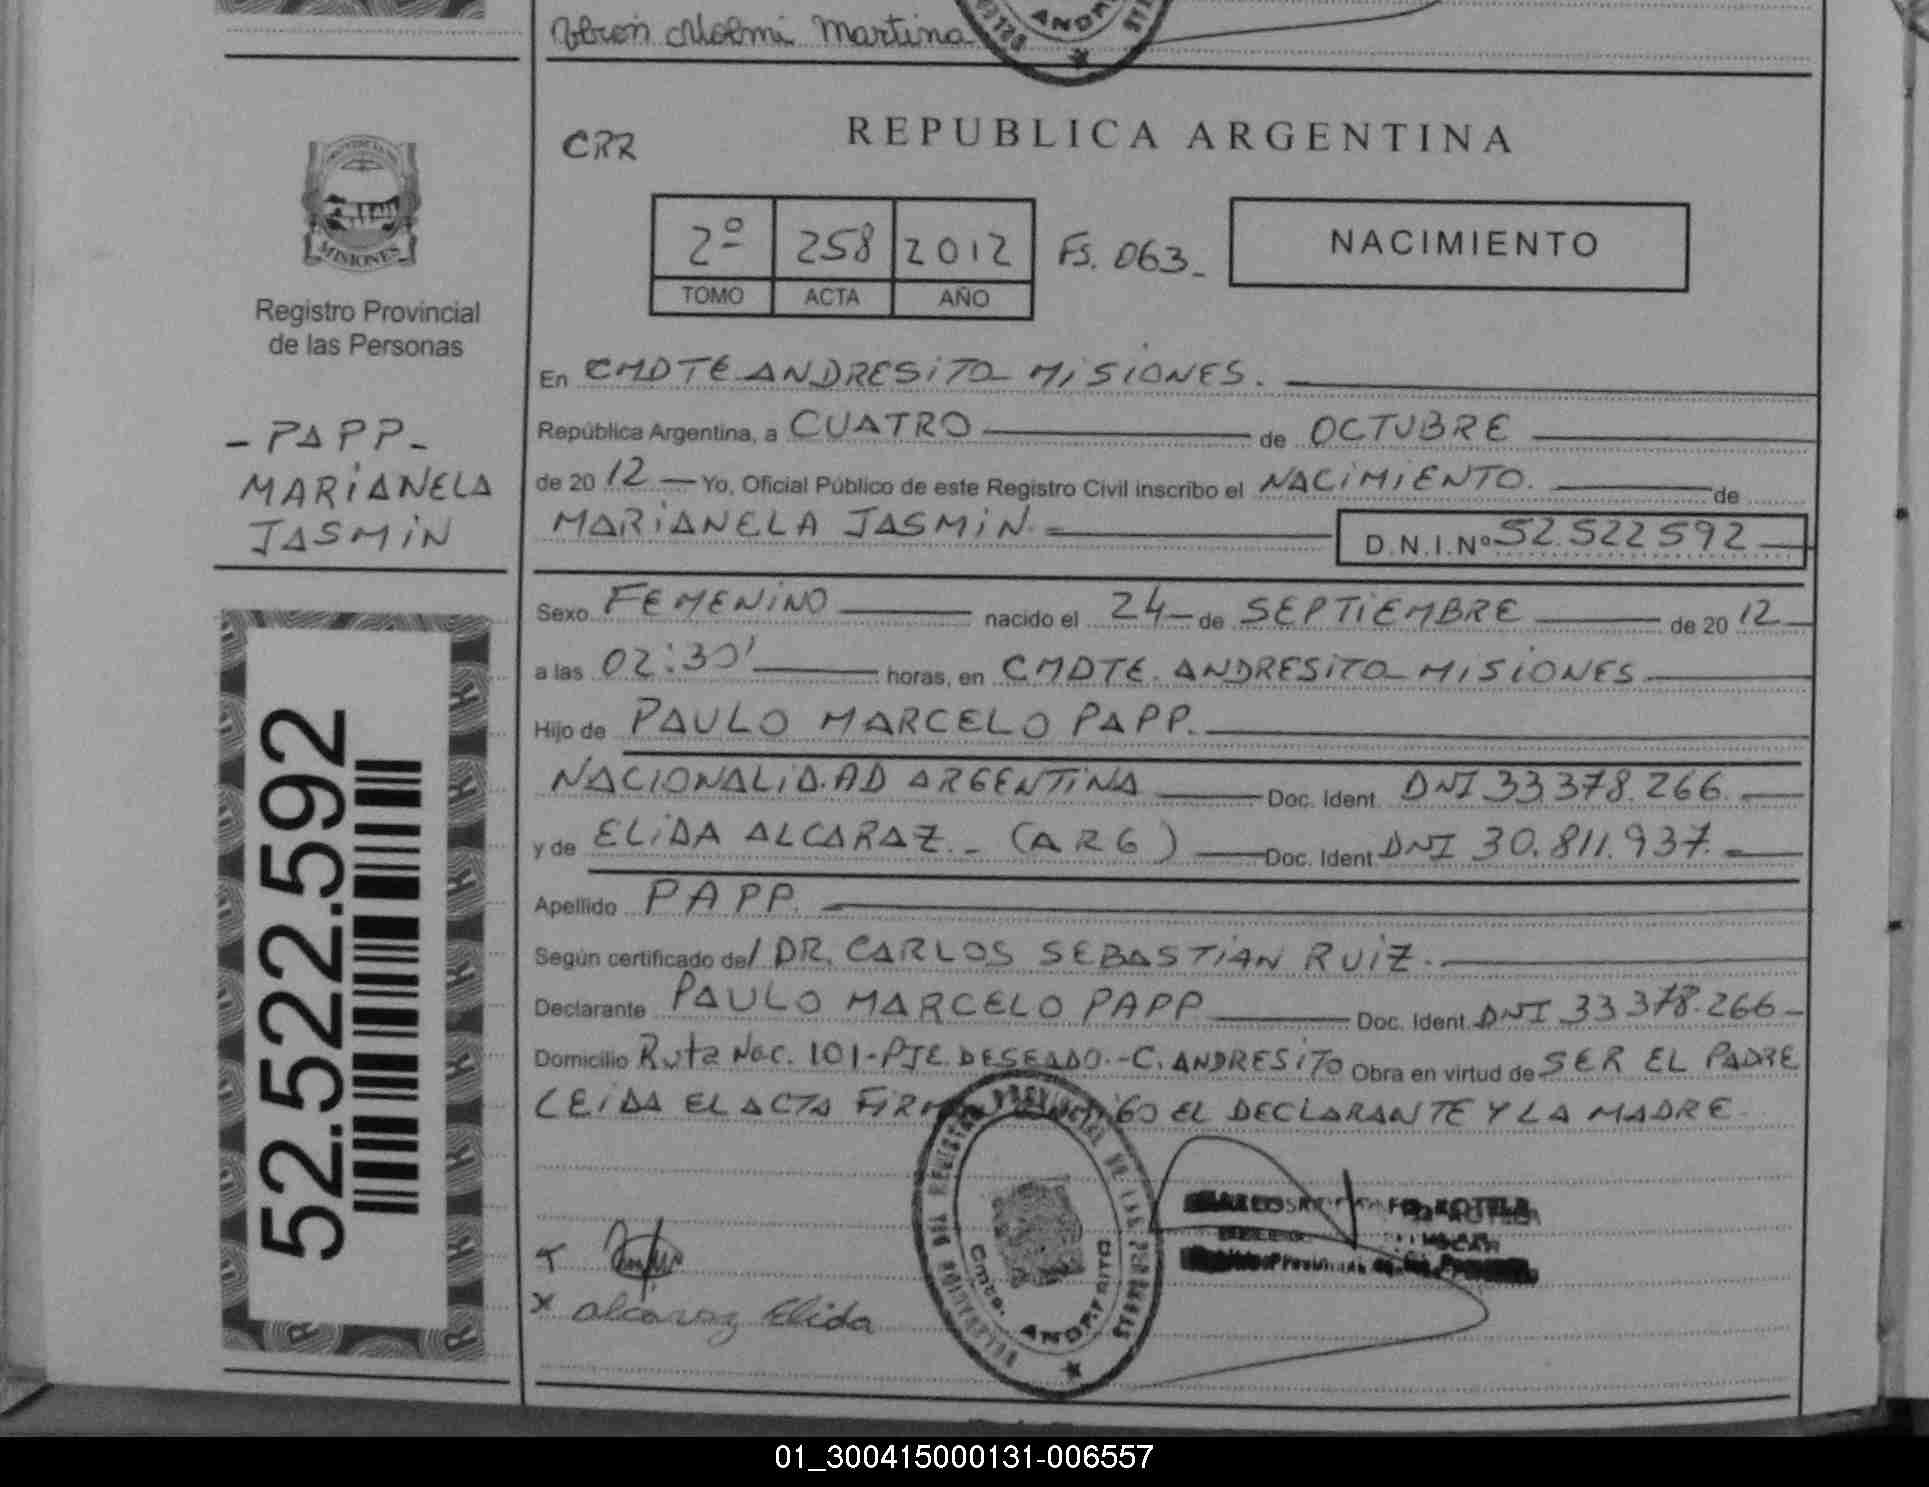 Noemi Martina
CRR
REPUBLICA ARGENTINA
2º 258 2012 FS. 063_
TOMO ACTA AÑO
NACIMIENTO
MISIONES
Registro Provincial
de las Personas
- PAPP -
MARIANELA
JASMIN
En CMDTE ANDRESITO MISIONES.
República Argentina, a CUATRO de OCTUBRE
de 2012 Yo, Oficial Público de este Registro Civil inscribo el NACIMIENTO. de
MARIANELA JASMIN. D.N.I.Nº 52.522 592
Sexo FEMENINO nacido el 24 de SEPTIEMBRE de 2012
a las 02:30' horas, en CMDTE. ANDRESITO MISIONES
Hijo de PAULO MARCELO PAPP.
NACIONALIDAD ARGENTINA Doc. Ident. DNI 33 378.266.
y de ELIDA ALCARAZ.- (ARG) Doc. Ident. DNI 30.811.937.
Apellido PAPP.
Según certificado del DR. CARLOS SEBASTIAN RUIZ.
Declarante PAULO MARCELO PAPP Doc. Ident. DNI 33 378.266
Domicilio Ruta Nac. 101-PJE. DESEADO.-C. ANDRESITO Obra en virtud de SER EL PADRE
LEIDA EL ACTA EL DECLARANTE Y LA MADRE.
52.522.592
x Alcaraz Elida
01_300415000131-006557